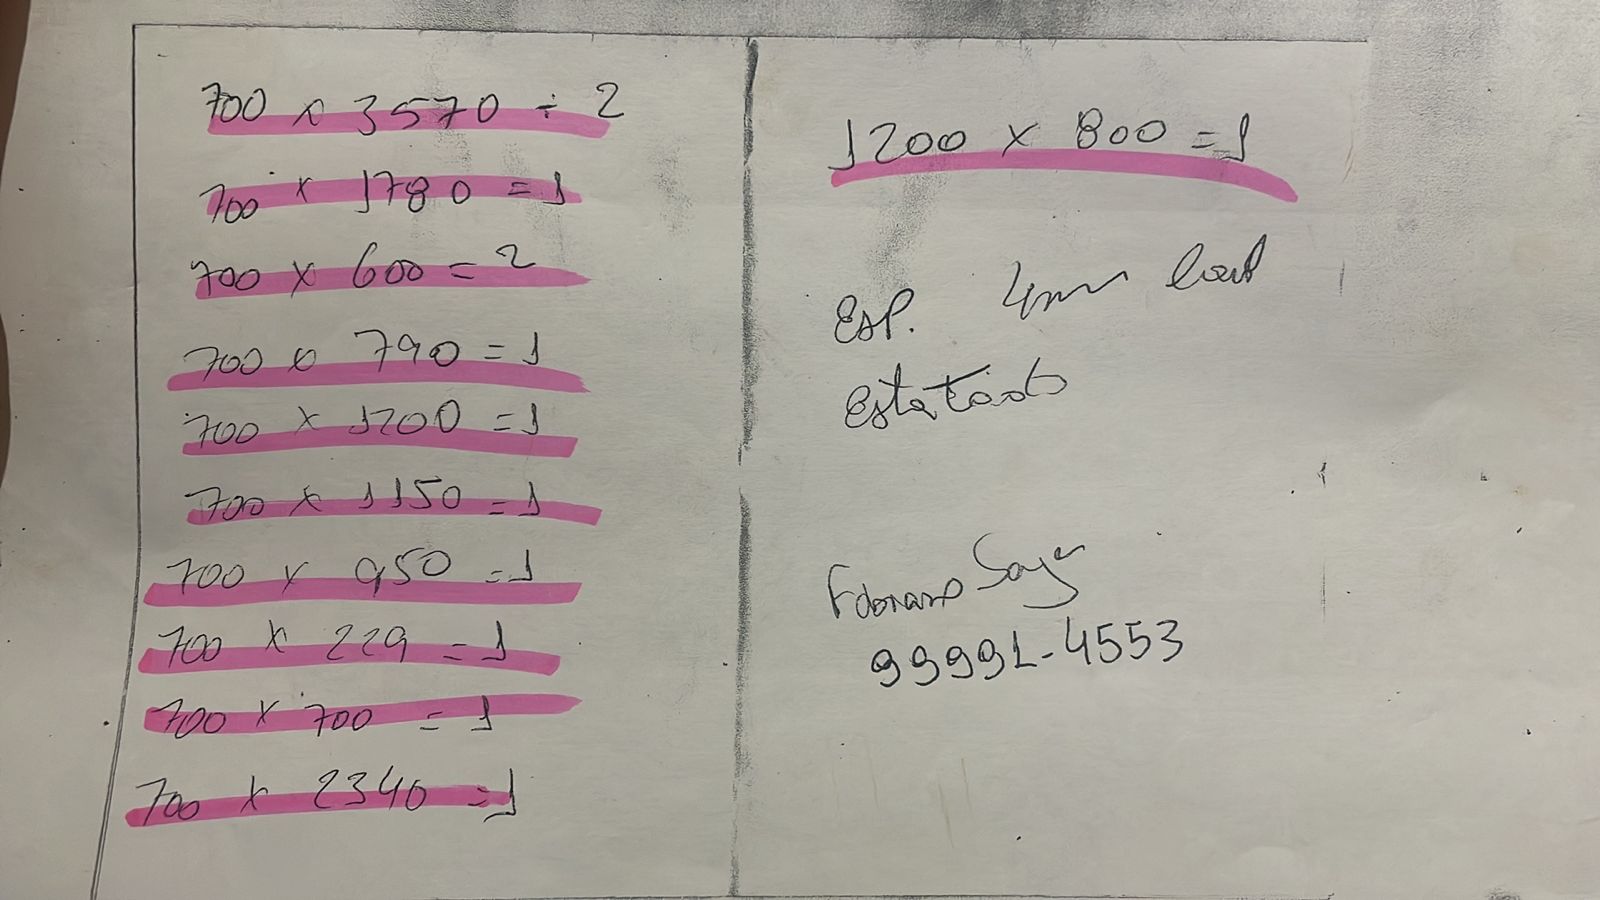 700 x 3570 ÷ 2
700 x 1780 = 1
700 x 600 = 2
700 x 790 = 1
700 x 1200 = 1
700 x 1150 = 1
700 x 950 = 1
700 x 229 = 1
700 x 700 = 1
700 x 2340 = 1
1200 x 800 = 1
Esp. 4mm
99991-4553